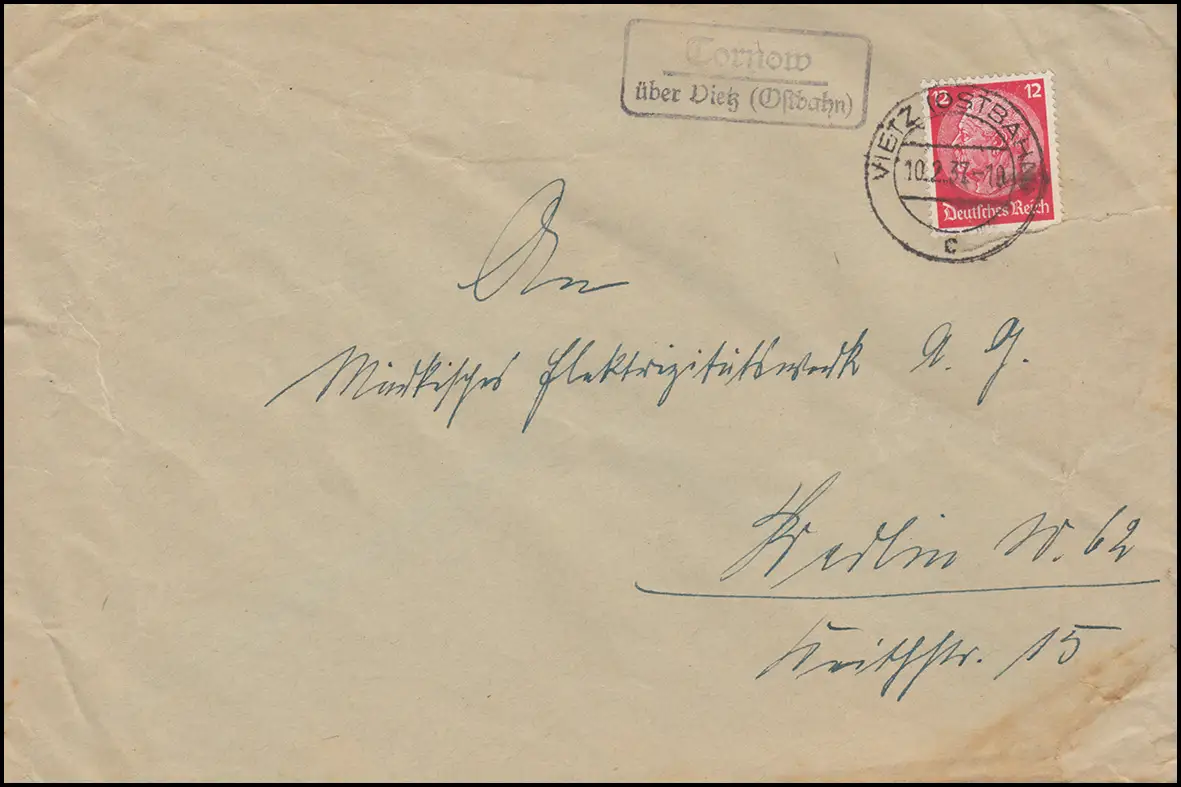 Tornow
über Vietz (Ostbahn)
12 12
Deutsches Reich
VIETZ (OSTBAHN)
10.2.37.-10
c
An
Märkisches Elektrizitätswerk A. G.
Berlin W. 62
Keithstr. 15